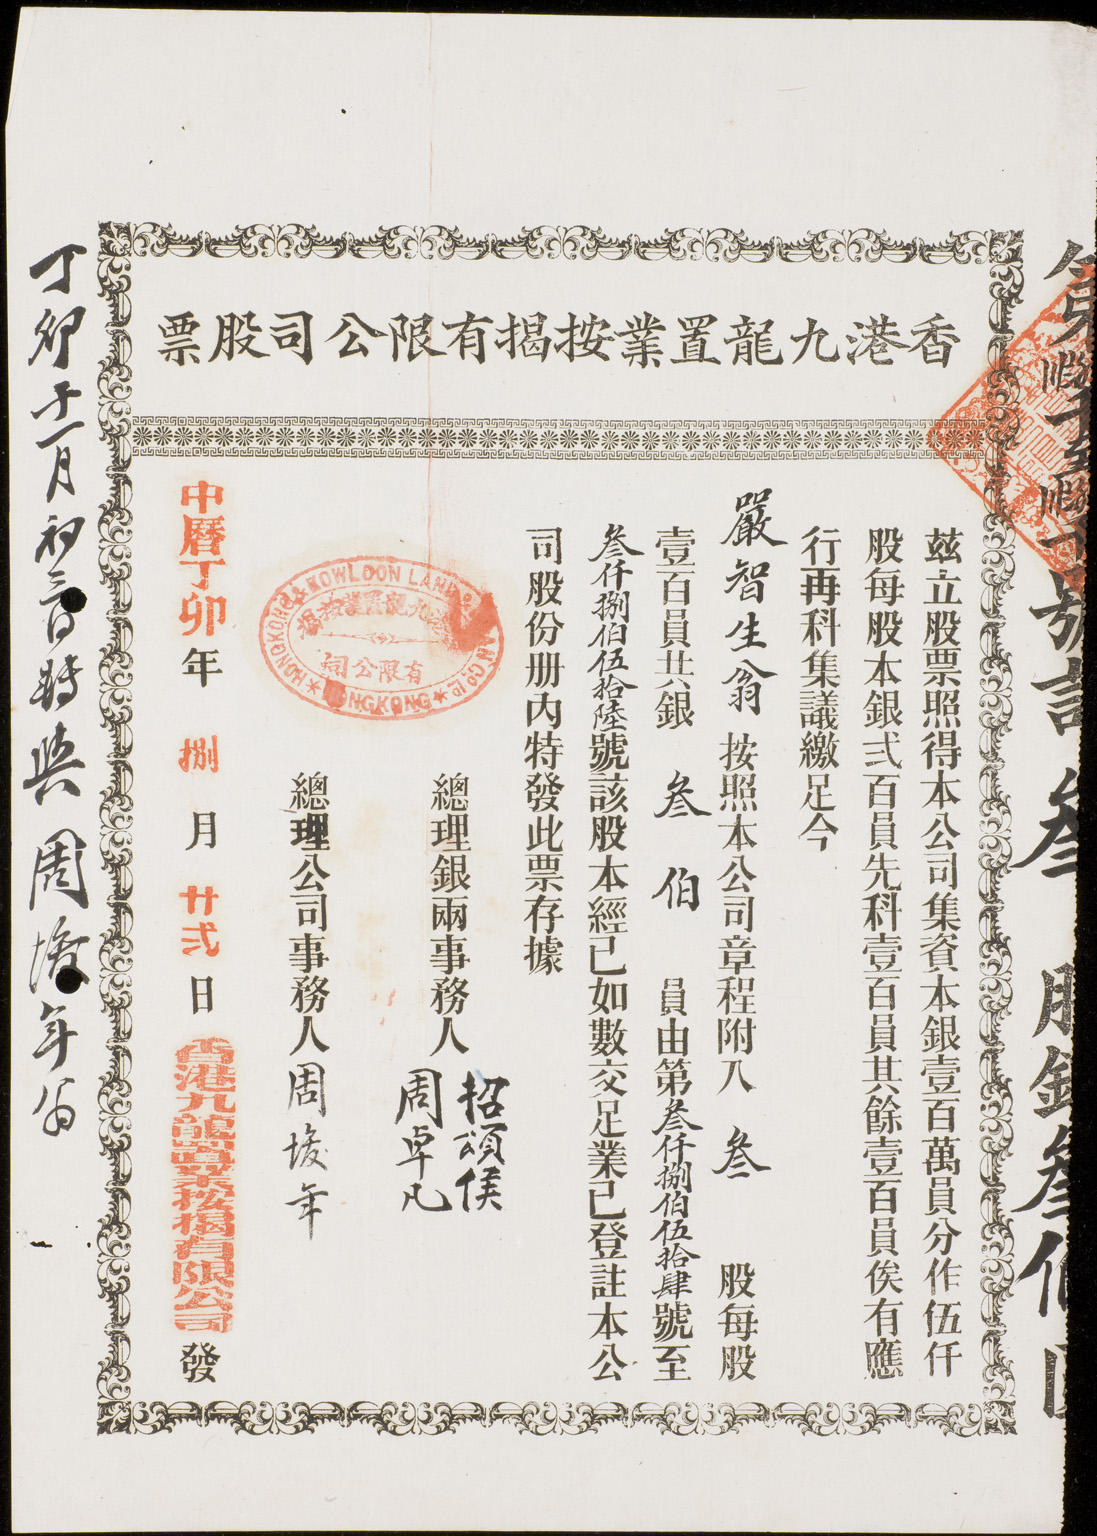 香港九龍置業按揭有限公司股票
茲立股票照得本公司集資本銀壹百萬員分作伍仟
股每股本銀弍百員先科壹百員其餘壹百員俟有應
行再科集議繳足今
嚴智生翁按照本公司章程附入叁股每股
壹百員共銀叁伯員由第叁仟捌伯伍拾肆號至
叁仟捌伯伍拾陸號該股本經已如數交足業已登註本公
司股份册內特發此票存據
總理銀兩事務人
招頌侯
周卓凡
HONGKONG & KOWLOON LAND & LOAN CO. LD.
有限公司
HONGKONG
總理公司事務人周埈年
中曆丁卯年捌月廿弍日香港九龍置業按揭有限公司發
丁卯十一月初三日時與周埈年翁